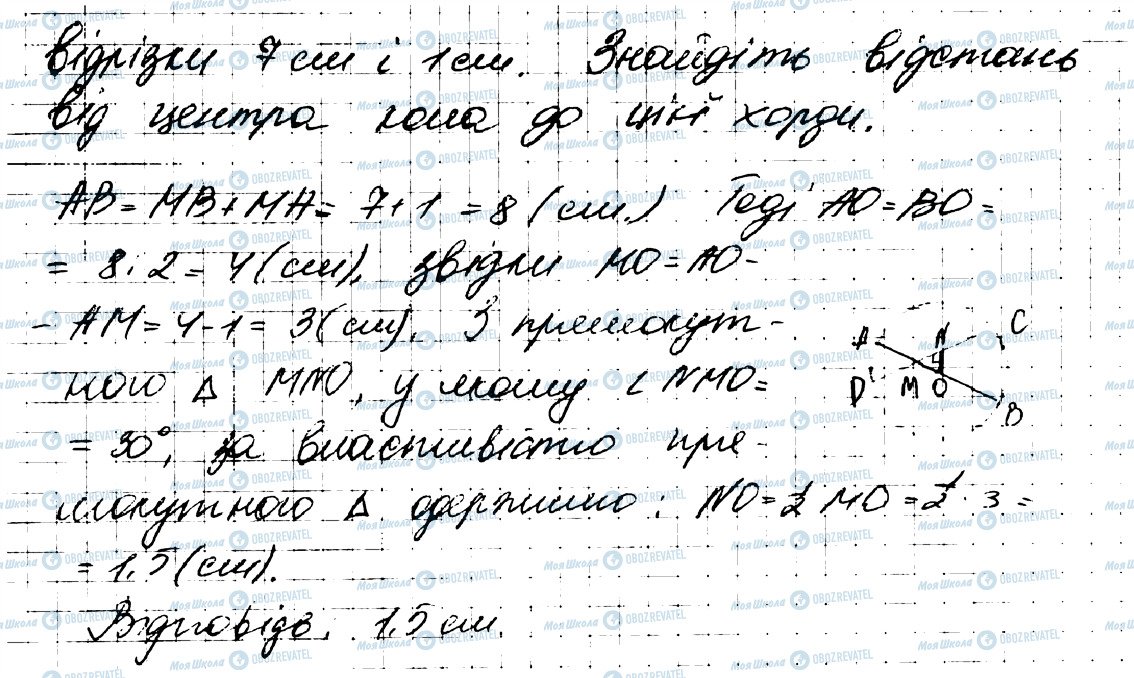 відрізки 7 см і 1 см. Знайдіть відстань
від центра кола до цієї хорди.
AB = MB + MA = 7 + 1 = 8 (см.) Тоді AO = BO =
= 8 : 2 = 4 (см), звідки MO = AO -
- AM = 4 - 1 = 3 (см). З прямокут-
ного Δ MNO, у якому ∠ NMO =
= 30°, за властивістю пря-
мокутного Δ одержимо: NO = 1/2 MO = 1/2 · 3 =
= 1,5 (см).
Відповідь. 1,5 см.
A N C
D M O B
МояШкола OBOZREVATEL